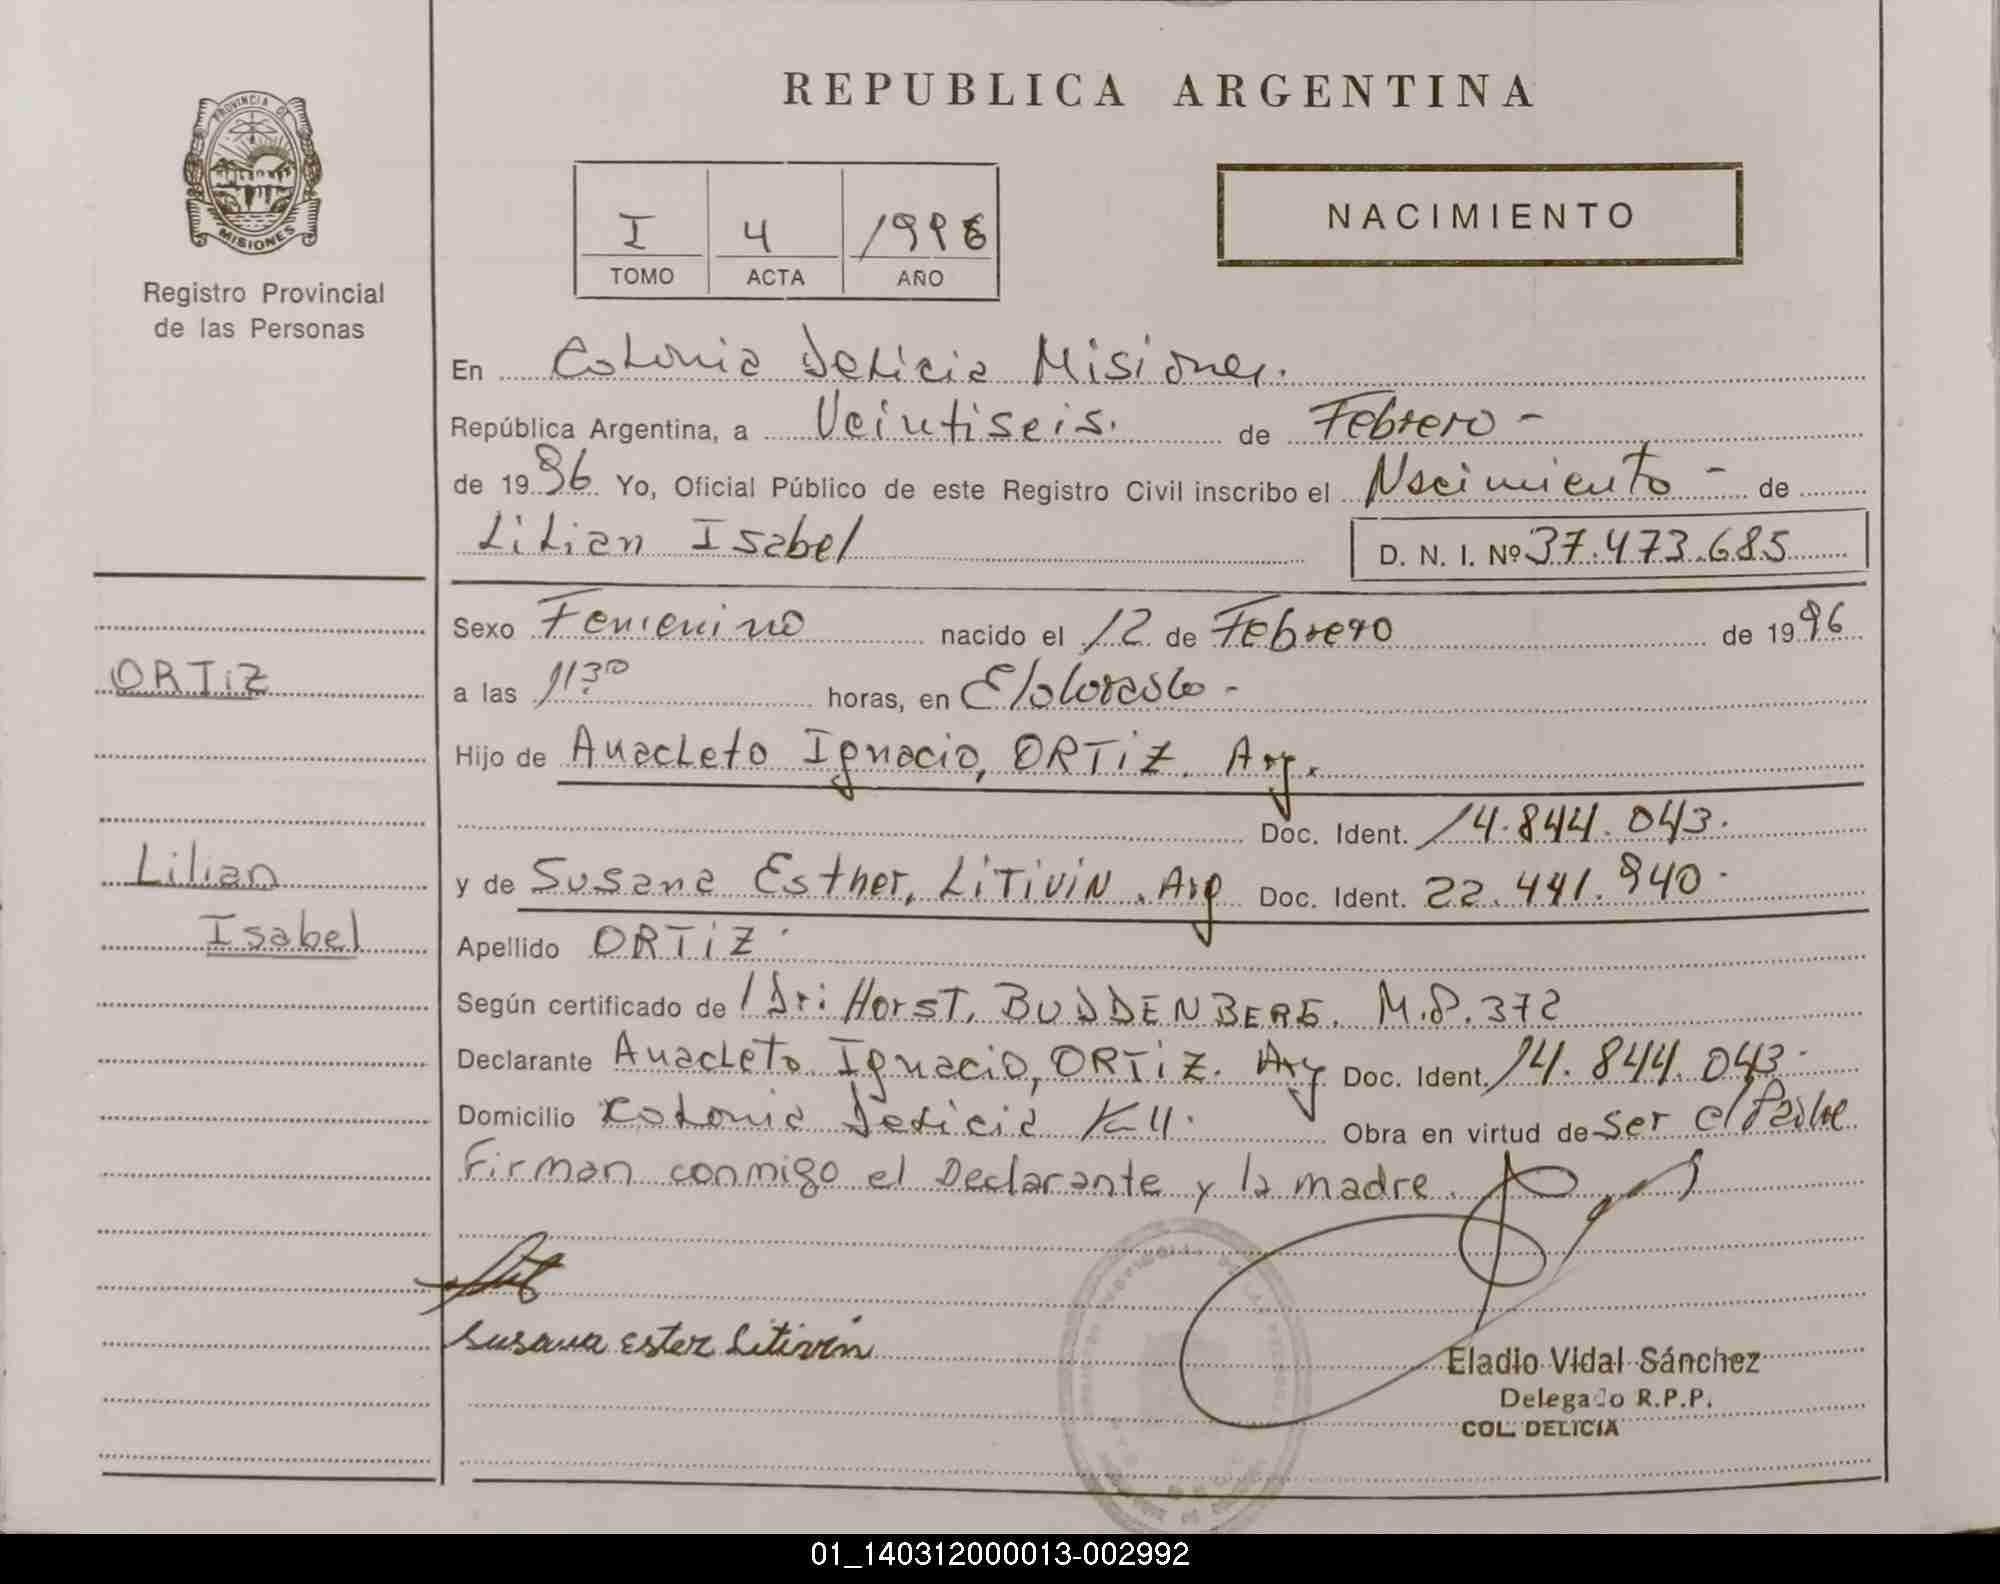 REPUBLICA ARGENTINA
PROVINCIA DE
MISIONES
Registro Provincial
de las Personas
I 4 1996
TOMO ACTA AÑO
NACIMIENTO
En Colonia Delicia Misiones.
República Argentina, a Veintiseis. de Febrero -
de 1996 Yo, Oficial Público de este Registro Civil inscribo el Nacimiento - de
Lilian Isabel D. N. I. Nº 37.473.685
Sexo Femenino nacido el 12 de Febrero de 1996
a las 11 30 horas, en Eldorado -
Hijo de Anacleto Ignacio, ORTIZ. Arg.
Doc. Ident. 14.844.043.
y de Susana Esther, LITIVIN. Arg Doc. Ident. 22.441.940.
Apellido ORTIZ.
Según certificado de Dr: Horst, BUDDENBERG. M.P. 372
Declarante Anacleto Ignacio, ORTIZ. Arg Doc. Ident. 14.844.043.
Domicilio Colonia Delicia K 11. Obra en virtud de ser el Padre
Firman conmigo el Declarante y la madre.
Susana Ester Litivin
Eladio Vidal Sánchez
Delegado R.P.P.
COL. DELICIA
ORTIZ
Lilian
Isabel
01_140312000013-002992